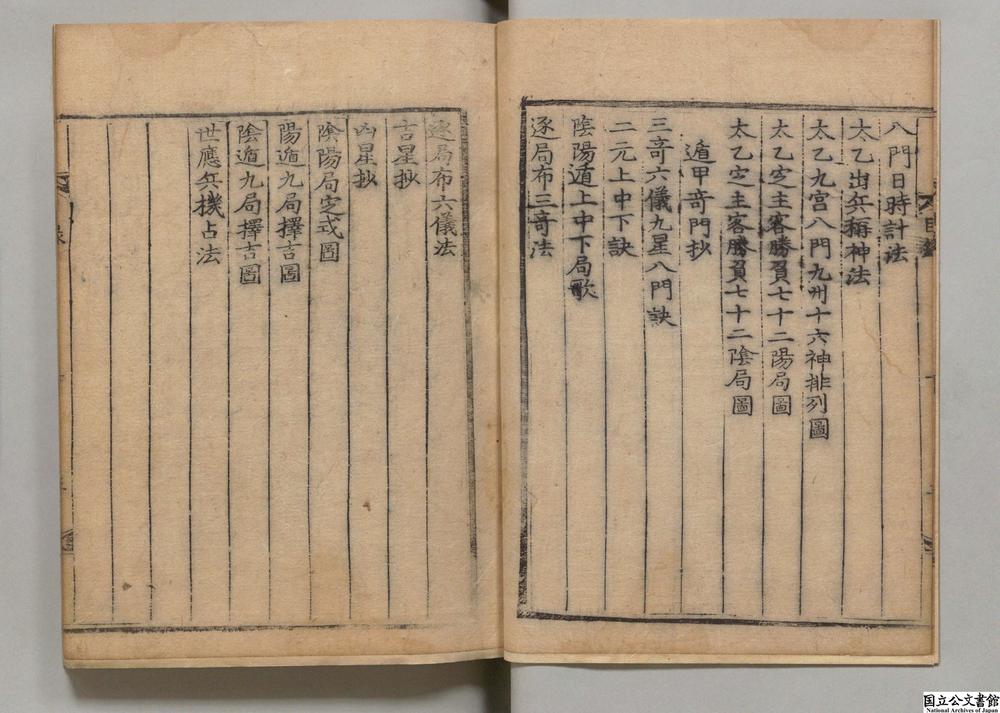 八門日時計法
太乙出兵稱神法
太乙九宮八門九州十六神排列圖
太乙定主客勝負七十二陽局圖
太乙定主客勝負七十二陰局圖
遁甲奇門抄
三奇六儀九星八門訣
二元上中下訣
陰陽遁上中下局歌
逐局布三奇法
逐局布六儀法
吉星抄
凶星抄
陰陽局定式圖
陽遁九局擇吉圖
陰遁九局擇吉圖
世應兵機占法
国立公文書館
National Archives of Japan